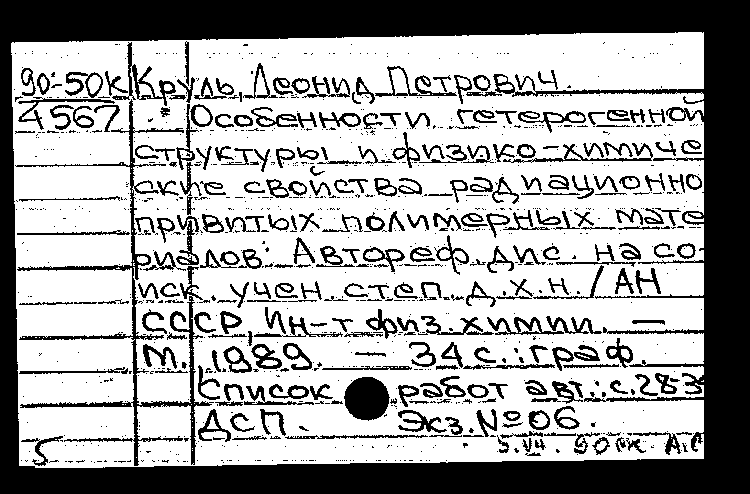 90:-50к Круль, Леонид Петрович.
4567 Особенности гетерогенной
структуры и физико-химиче
ские свойства радиационно
привитых полимерных мате
риалов: Автореф. дис. на со-
иск. учен. степ. д.х.н. / АН
СССР, Ин-т физ. химии. —
М., 1989. — 34 с.: граф.
Список работ авт.: с. 28-3
ДСП. Экз. № 06.
5